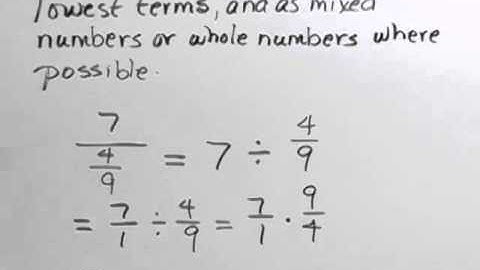 lowest terms, and as mixed
numbers or whole numbers where
possible.
7/(4/9) = 7 ÷ 4/9
= 7/1 ÷ 4/9 = 7/1 · 9/4